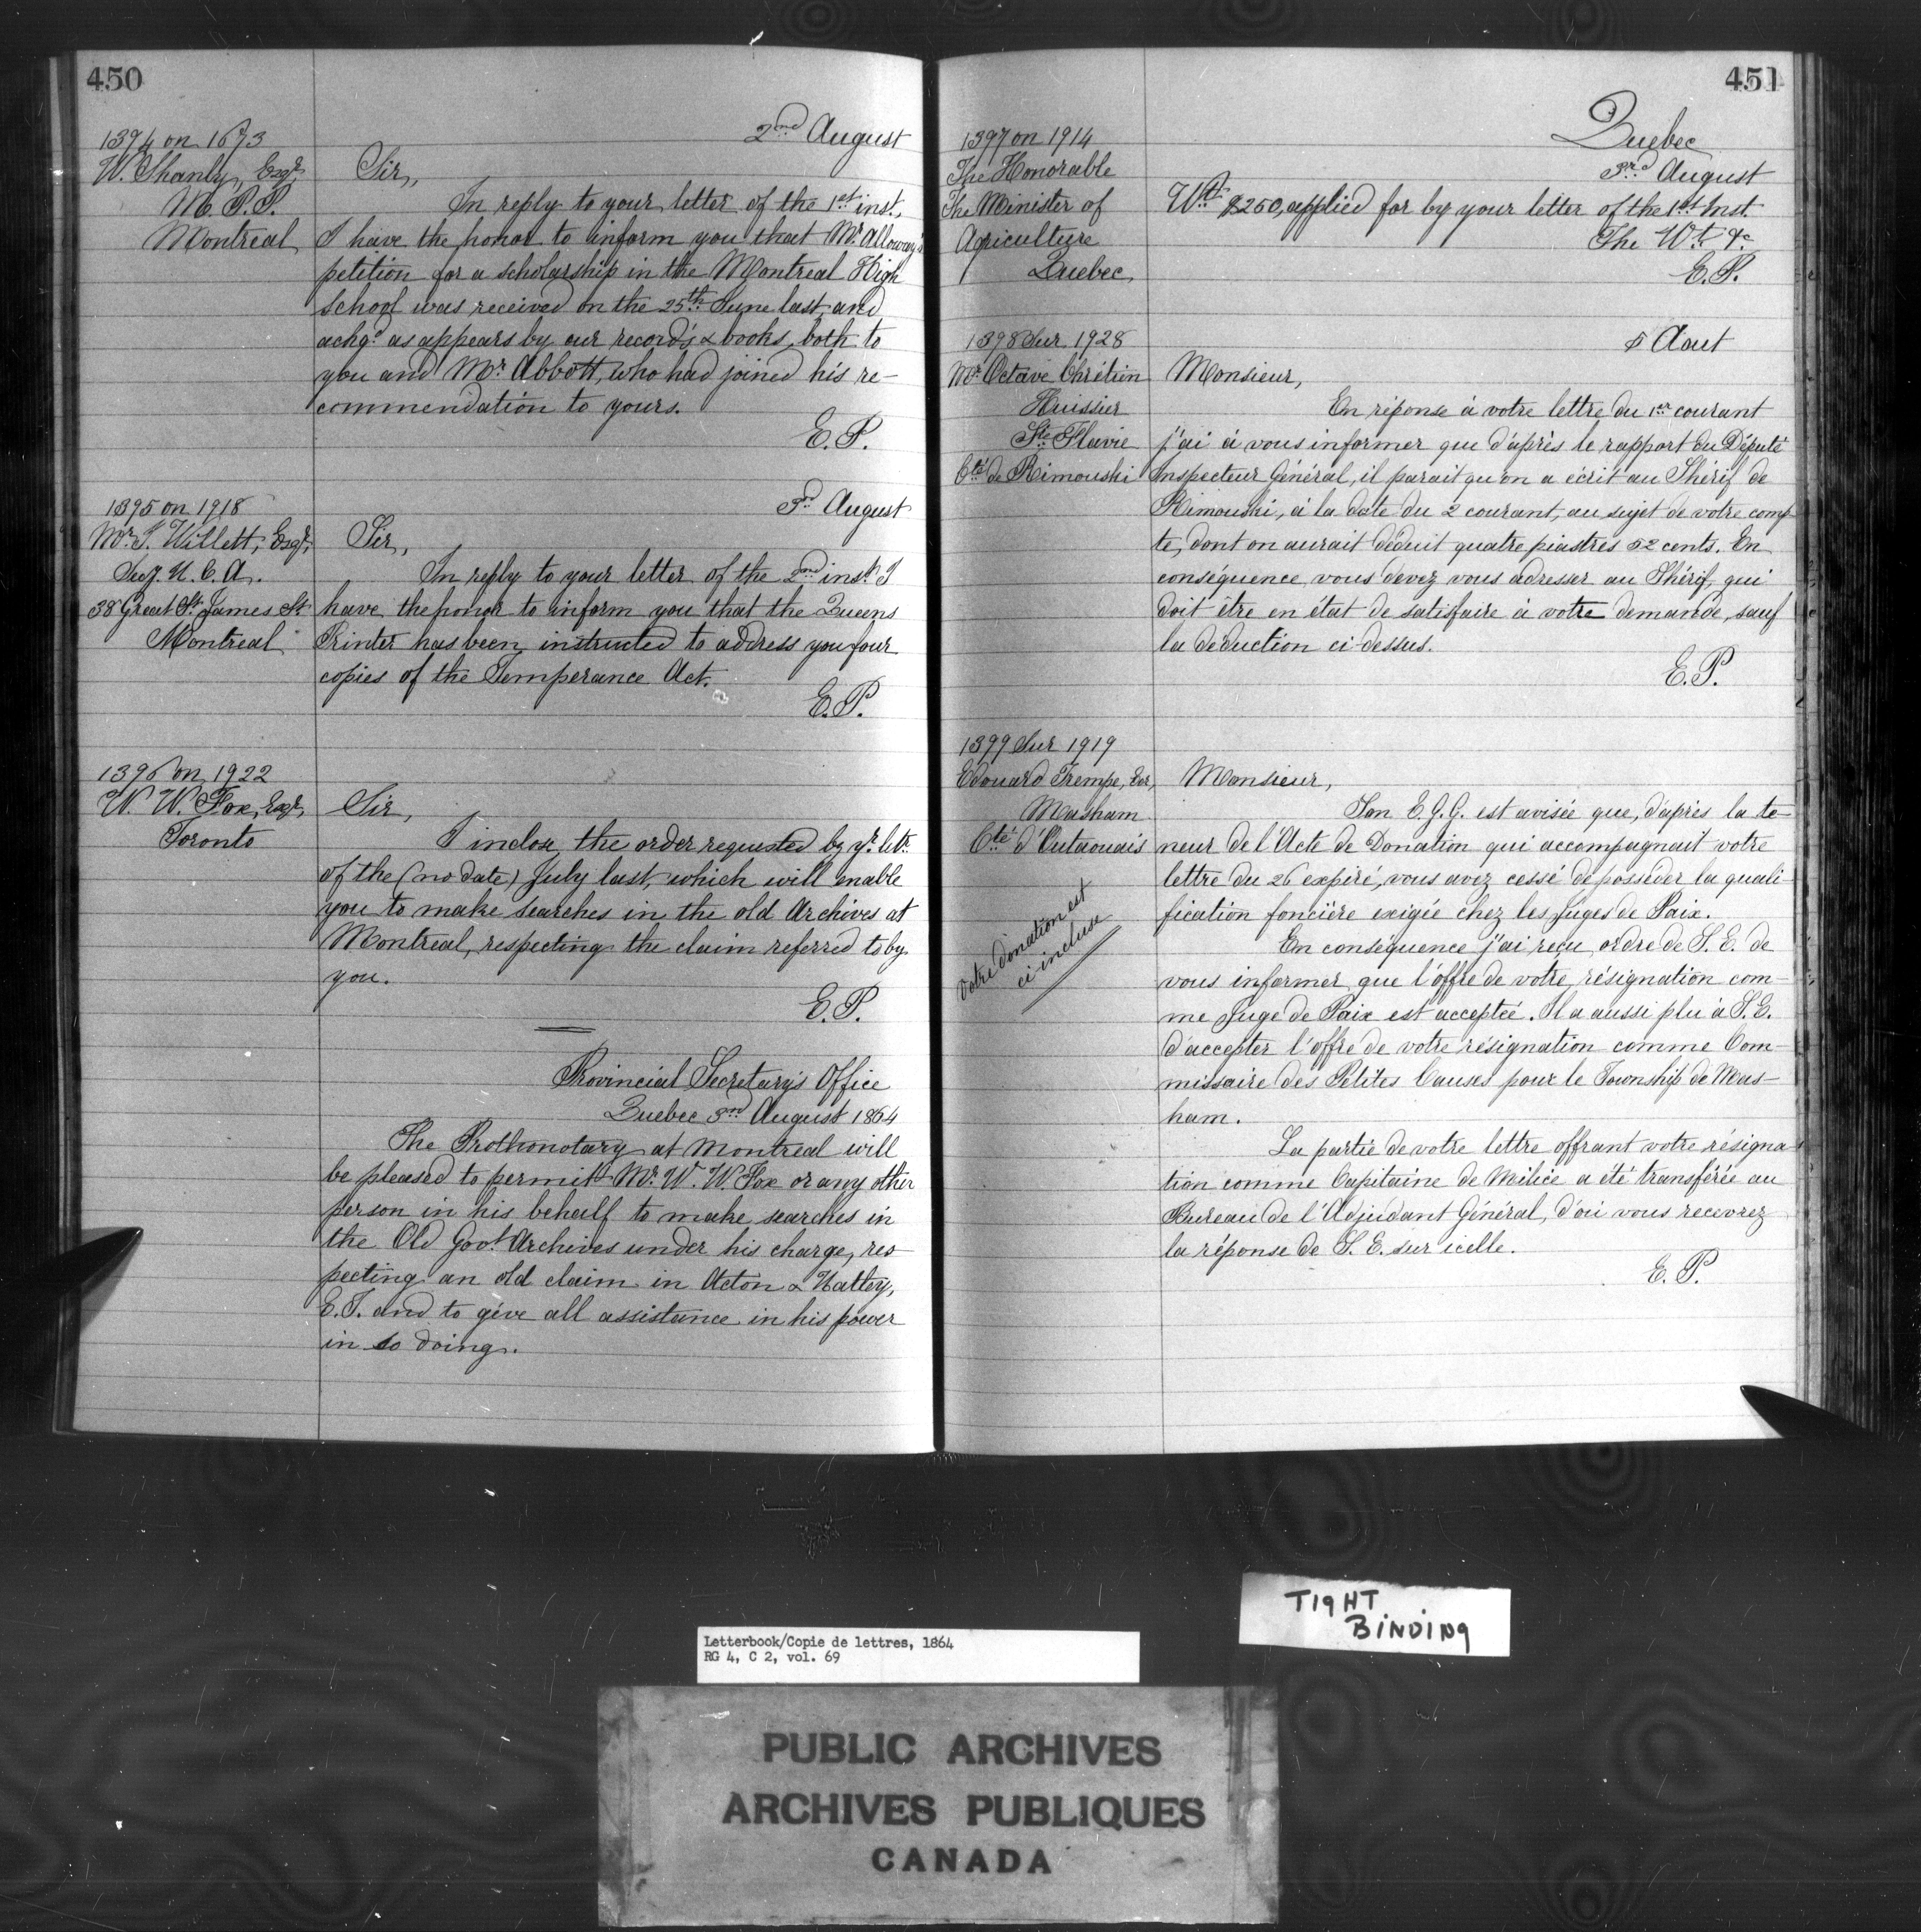 450
2nd August
1394 on 1673
W. Shanly, Esqr,
M. P. P.
Montreal
Sir,
In reply to your letter of the 1st inst.,
I have the honor to inform you that Mr Alloway's
petition for a scholarship in the Montreal High
School was received on the 25th June last, and
ackgd as appears by our records & books, both to
you and Mr Abbott, who had joined his re-
commendation to yours.
E. P.
3rd August
1395 on 1918
Mr. T. Willett, Esqr,
Secy. U. C. A.
38 Great St. James St.
Montreal
Sir,
In reply to your letter of the 2nd inst. I
have the honor to inform you that the Queens
Printer has been instructed to address you four
copies of the Temperance Act.
E. P.
1396 on 1922
W. W. Fox, Esqr,
Toronto
Sir,
I inclose the order requested by yr. letr.
of the (no date) July last, which will enable
you to make searches in the old Archives at
Montreal, respecting the claim referred to by
you.
E. P.
Provincial Secretary's Office
Quebec 3rd August 1864
The Prothonotary at Montreal will
be pleased to permit Mr. W. W. Fox or any other
person in his behalf to make searches in
the Old Govt. Archives under his charge, res-
pecting an old claim in Acton & Hatley,
E. T. and to give all assistance in his power
in so doing.
451
Quebec
3rd August
1397 on 1914
The Honorable
The Minister of
Agriculture
Quebec
Wt. $250, applied for by your letter of the 1st Inst.
The Wt. &c
E. P.
5 Aout
1398 Sur 1928
Mr. Octave Chrétien
Huissier
Ste Flavie
Cté de Rimouski
Monsieur,
En réponse à votre lettre du 1er courant
j'ai à vous informer que d'après le rapport du Député
Inspecteur Général, il parait qu'on a écrit au Shérif de
Rimouski, à la date du 2 courant, au sujet de votre comp-
te, dont on aurait déduit quatre piastres 52 cents. En
conséquence vous devez vous adresser au Shérif, qui
doit être en état de satisfaire à votre demande, sauf
la déduction ci-dessus.
E. P.
1399 Sur 1919
Edouard Trempe, Ecr,
Masham
Cté d'Outaouais
Votre donation est
ci incluse
Monsieur,
Son E. G. G. est avisée que, d'après la te-
neur de l'Acte de Donation qui accompagnait votre
lettre du 26 expiré, vous avez cessé de posséder la quali-
fication foncière exigée chez les Juges de Paix.
En conséquence j'ai reçu ordre de S. E. de
vous informer que l'offre de votre résignation com-
me Juge de Paix est acceptée. Il a aussi plu à S. E.
d'accepter l'offre de votre résignation comme Com-
missaire des Petites Causes pour le Township de Mas-
ham.
La partie de votre lettre offrant votre résigna-
tion comme Capitaine de Milice a été transférée au
Bureau de l'Adjudant Général, d'où vous recevrez
la réponse de S. E. sur icelle.
E. P.
TIGHT
BINDING
Letterbook/Copie de lettres, 1864
RG 4, C 2, vol. 69
PUBLIC ARCHIVES
ARCHIVES PUBLIQUES
CANADA